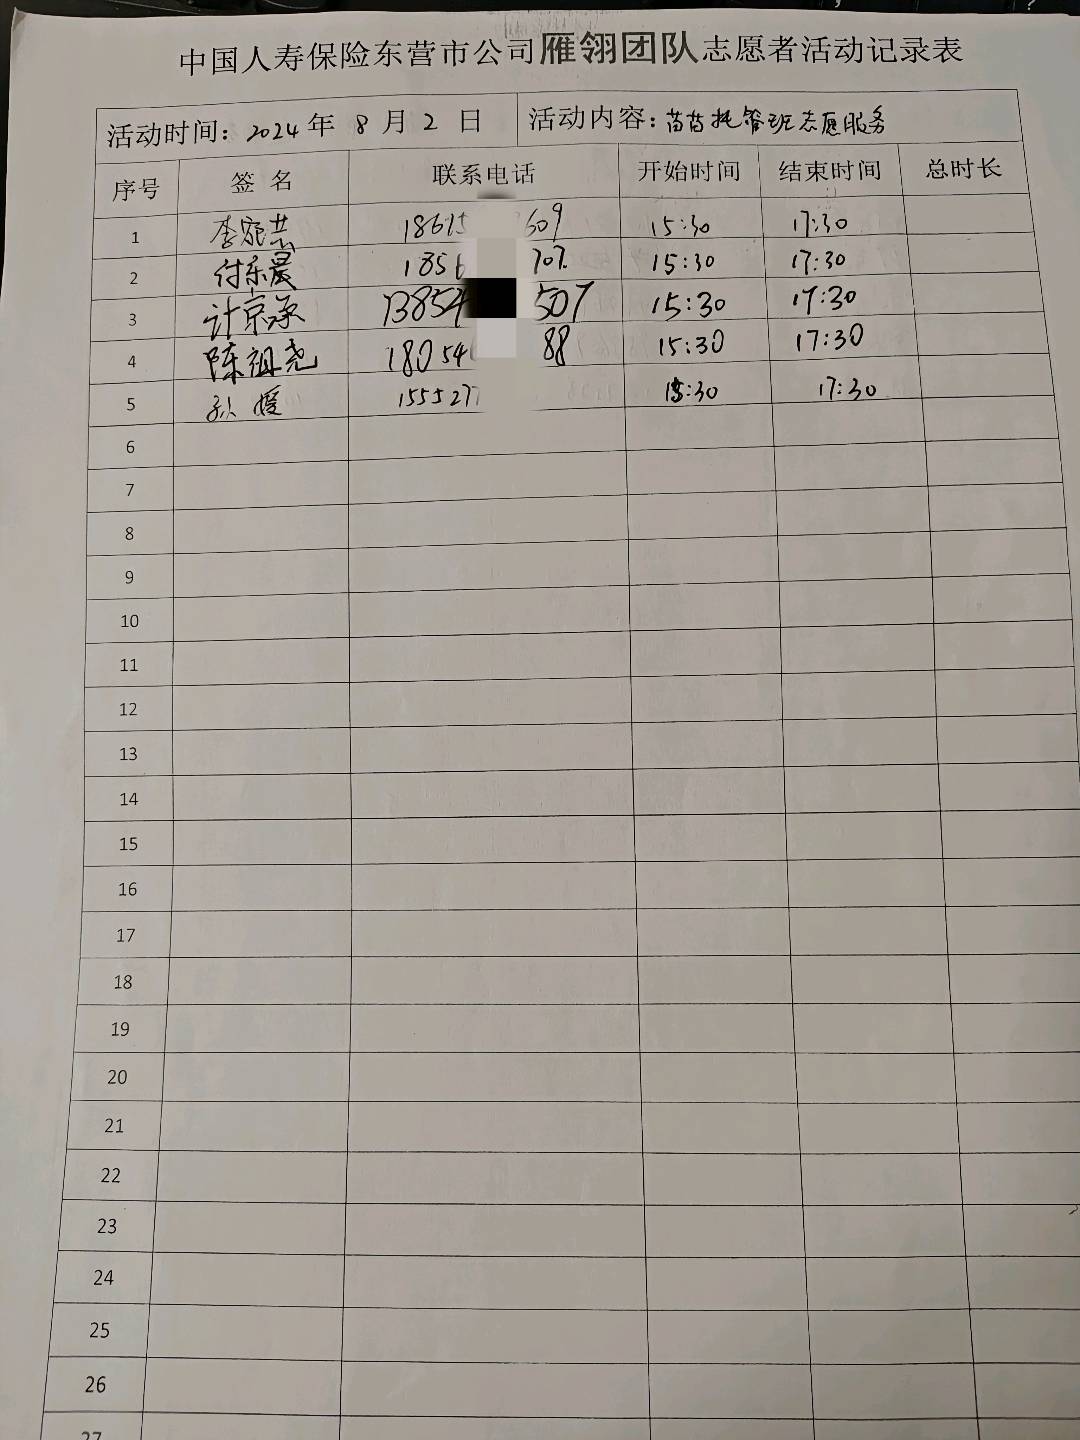 中国人寿保险东营市公司雁翎团队志愿者活动记录表
活动时间: 2024 年 8 月 2 日 活动内容: 苗苗托管班志愿服务
序号 签 名 联系电话 开始时间 结束时间 总时长
1 李 18615 609 15:30 17:30
2 付东晨 1856 707 15:30 17:30
3 计京承 13854 507 15:30 17:30
4 陈祖尧 18054 88 15:30 17:30
5 孙媛 1555277 15:30 17:30
6
7
8
9
10
11
12
13
14
15
16
17
18
19
20
21
22
23
24
25
26
27